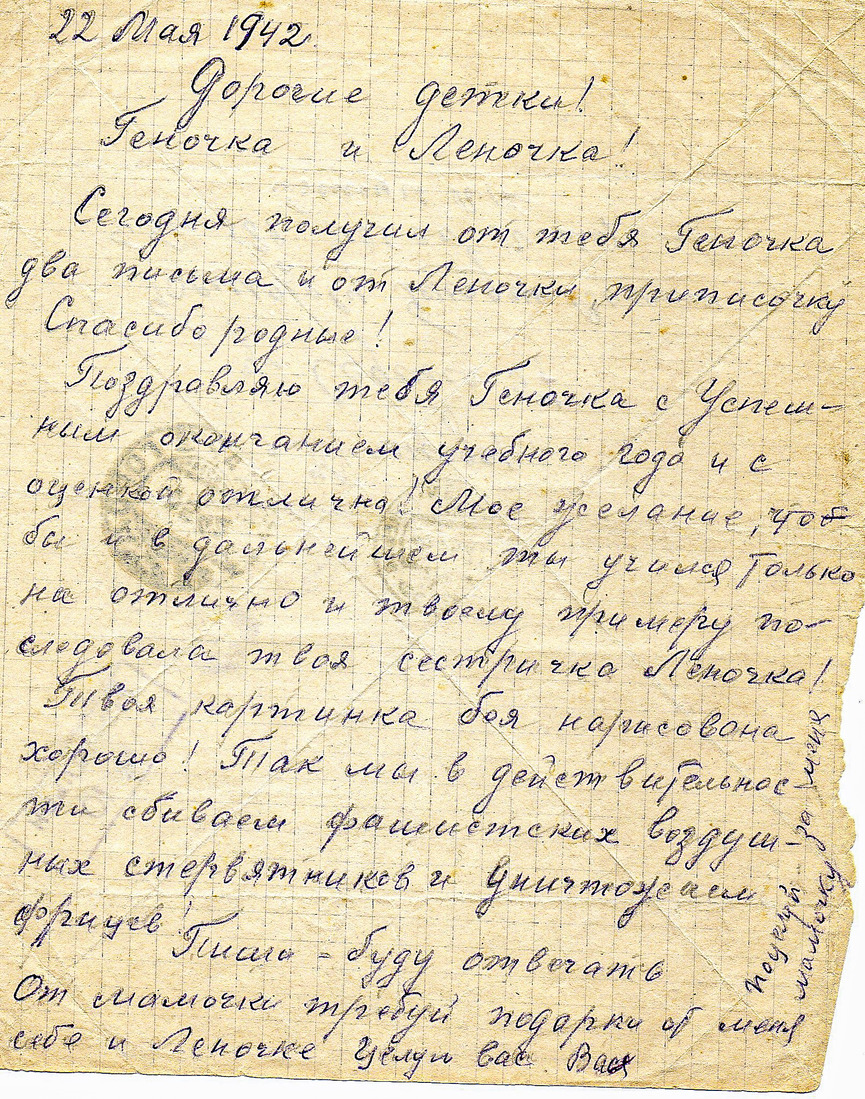 22 Мая 1942.
Дорогие детки!
Геночка и Леночка!
Сегодня получил от тебя Геночка
два письма и от Леночки приписочку
Спасибо родные!
Поздравляю тебя Геночка с Успеш-
ным окончанием учебного года и с
оценкой отлично! Мое желание, чтоб
бы и в дальнейшем ты учился только
на отлично и твоему примеру по-
следовала твоя сестричка Леночка!
Твоя картинка боя нарисована
хорошо! Так мы в действительнос-
ти сбиваем фашистских воздуш-
ных стервятников и уничтожаем
фрицев!
Пиши - буду отвечать
От мамочки требуй подарки от меня
себе и Леночке Целую вас.
поцелуй - за меня
мамочку